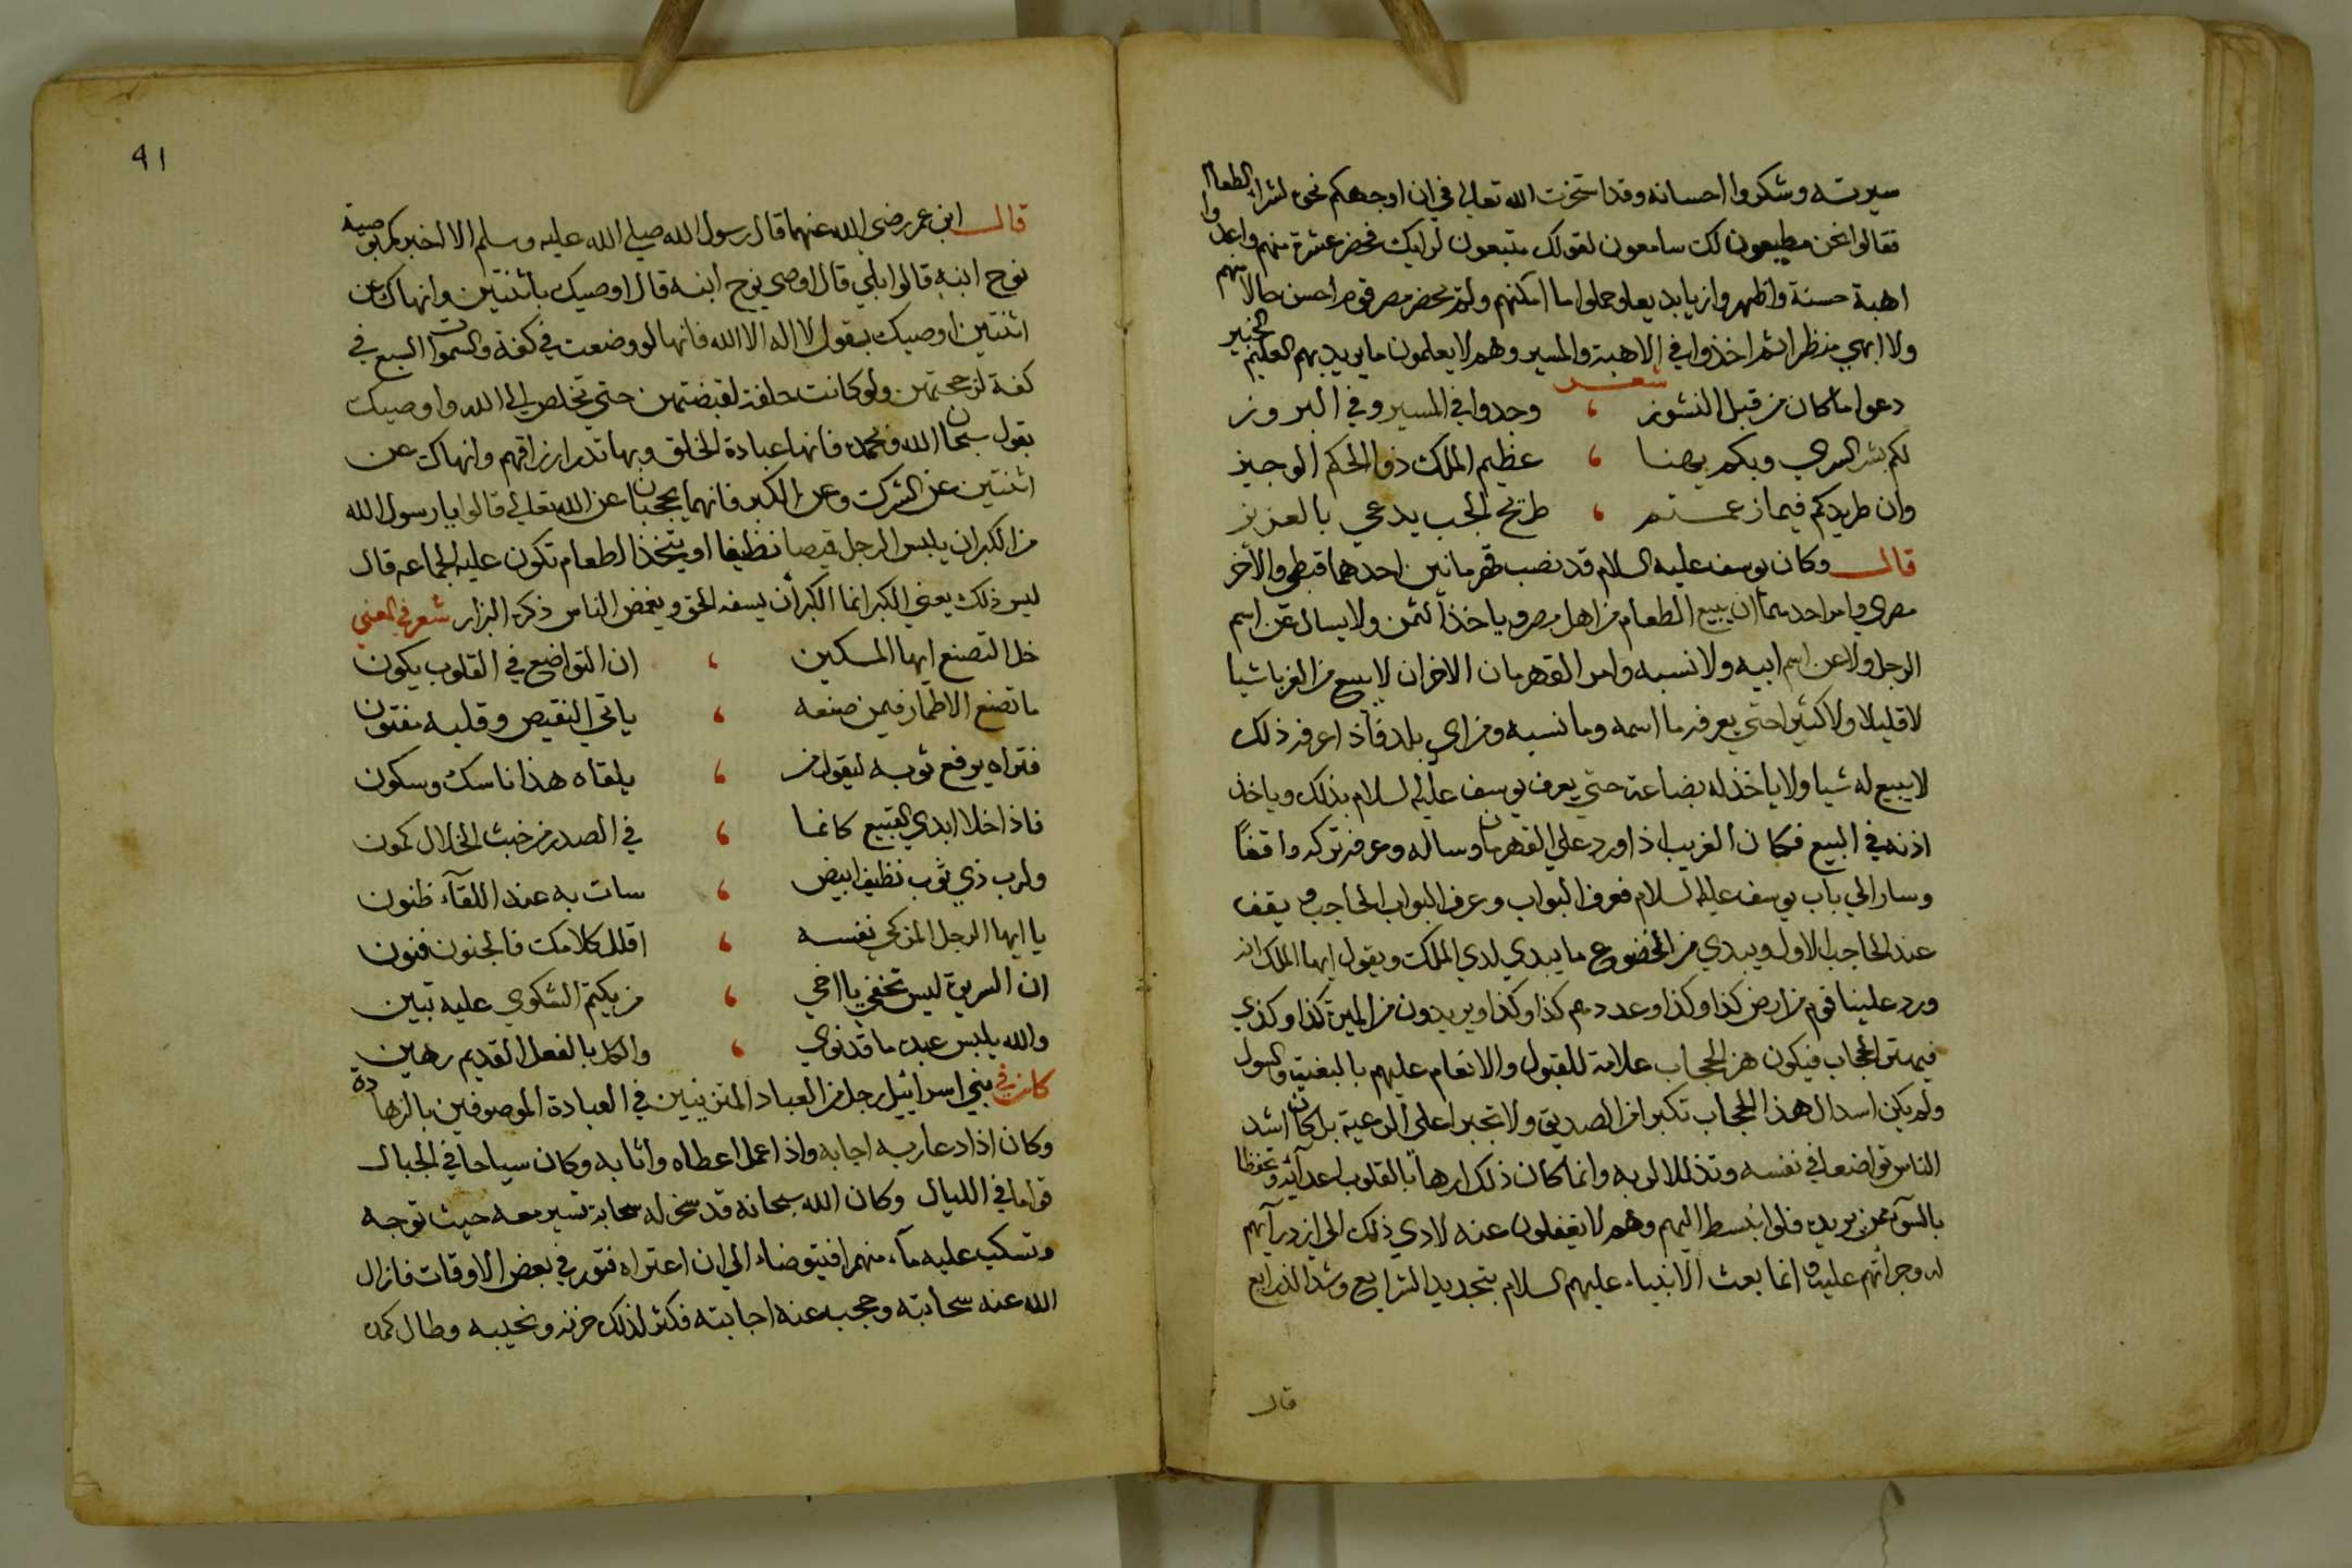 سيرته وشكروا احسانه وقد استخرت الله تعالى في ان اوجهكم نحوه لشراء الطعام
فقالوا نحن مطيعون لك سامعون لقولك متبعون لرايك فحضر عشرة منهم واعدوا
اهبة حسنة واظهروا زيا بديعا وحملوا ما امكنهم ولم يحضر مصر قوم احسن حالا منهم
ولا ابهي منظرا ثم اخذوا في الاهبة والمسير وهم لا يعلمون ما يريد بهم العليم الخبير
شعر
دعوا ما كان من قبل النشوز ، وجدوا في المسير وفي البروز
لكم بشر السري وبكم يهنا ، عظيم الملك ذو الحكم الوجيز
وان طريدكم فيما زعمتم ، طريح الجب يدعي بالعزيز
قال وكان يوسف عليه السلام قد نصب قهرمانين احدهما قبطي والآخر
مصري وامر احدهما ان يبيع الطعام من اهل مصر وياخذ الثمن ولا يسال عن اسم
الرجل ولا عن اسم ابيه ولا نسبه وامر القهرمان الاخر ان لا يبيع من الغربا شيا
لا قليلا ولا كثيرا حتي يعرفه ما اسمه وما نسبه ومن اي بلد فاذا عرفه ذلك
لا يبيع له شيا ولا ياخذ له بضاعة حتي يعرف يوسف عليه السلام بذلك وياخذ
اذنه في البيع فكان الغريب اذا ورد علي القهرمان وساله وعرفه تركه واقفا
وسار الي باب يوسف عليه السلام فعرف البواب وعرف البواب الحاجب ويقف
عند الحاجب الاول ويبدي من الخضوع ما يبدي لدي الملك ويقول ايها الملك انه
ورد علينا قوم من ارض كذا وكذا وعددهم كذا وكذا ويريدون من الميرة كذا وكذي
فيهتز الحجاب فيكون هز الحجاب علامة للقبول والانعام عليهم بالبغية والسول
ولم يكن اسدال هذا الحجاب تكبرا من الصديق ولا تجبرا علي الرعية بل كان اشد
الناس تواضعا في نفسه وتذللا لربه وانما كان ذلك ارهابا لقلوب اعدآئه وتحفظا
بالسوء ممن يريد فلو انبسط اليهم وهم لا يغفلون عنه لادي ذلك الي ازدرآيهم
له وجراتهم عليه وانما بعث الانبياء عليهم السلام بتجديد الشرايع وشد الذرايع
قال
91
قال ابن عمر رضي الله عنهما قال رسول الله صلي الله عليه وسلم الا اخبركم بوصية
نوح ابنه قالوا بلي قال اوصي نوح ابنه قال اوصيك باثنتين وانهاك عن
اثنتين اوصيك بقول لا اله الا الله فانها لو وضعت في كفة والسموات السبع في
كفة لرجحتهن ولو كانت حلقة لقبضتهن حتي تخلص الي الله واوصيك
بقول سبحان الله وبحمده فانها عبادة الخلق وبها تدر ارزاقهم وانهاك عن
اثنتين عن الشرك وعن الكبر فانهما يحجبان عن الله تعالي قالوا يا رسول الله
من الكبر ان يلبس الرجل قميصا نظيفا او يتخذ الطعام تكون عليه الجماعه قال
ليس ذلك يعني الكبر انما الكبر أن يسفه الحق ويغمض الناس ذكره البزار شعر في المعني
خل التصنع ايها المسكين ، ان التواضع في القلوب يكون
ما تصنع الاطمار فيمن صنعه ، ياتي النقيص وقلبه مفتون
فتراه يرفع ثوبه ليقول من ، يلقاه هذا ناسك وسكون
فاذا خلا ابدي القبيح كانما ، في الصدر من خبث الخلال كمون
ولرب ذي ثوب نظيف ابيض ، سات به عند اللقآء ظنون
يا ايها الرجل المزكي نفسه ، اقلل كلامك فالجنون فنون
ان السريرة ليس تخفي يا اخي ، من يكتم الشكوي عليه تبين
والله يلبس عبده ما قد نوي ، والكل بالفعل القديم رهين
كان في بني اسرائيل رجل من العباد المتزينين في العبادة الموصوفين بالزهادة
وكان اذا دعا ربه اجابه واذا عمل اعطاه واثابه وكان سياحا في الجبال
قواما في الليال وكان الله سبحانه قد سخر له سحابة تسير معه حيث توجه
وتسكب عليه مآء منهمرا فيتوضاء الي ان اعتراه فتور في بعض الاوقات فازال
الله عنه سحابته وحجب عنه اجابته فكثر لذلك حزنه ونحيبه وطال كمده